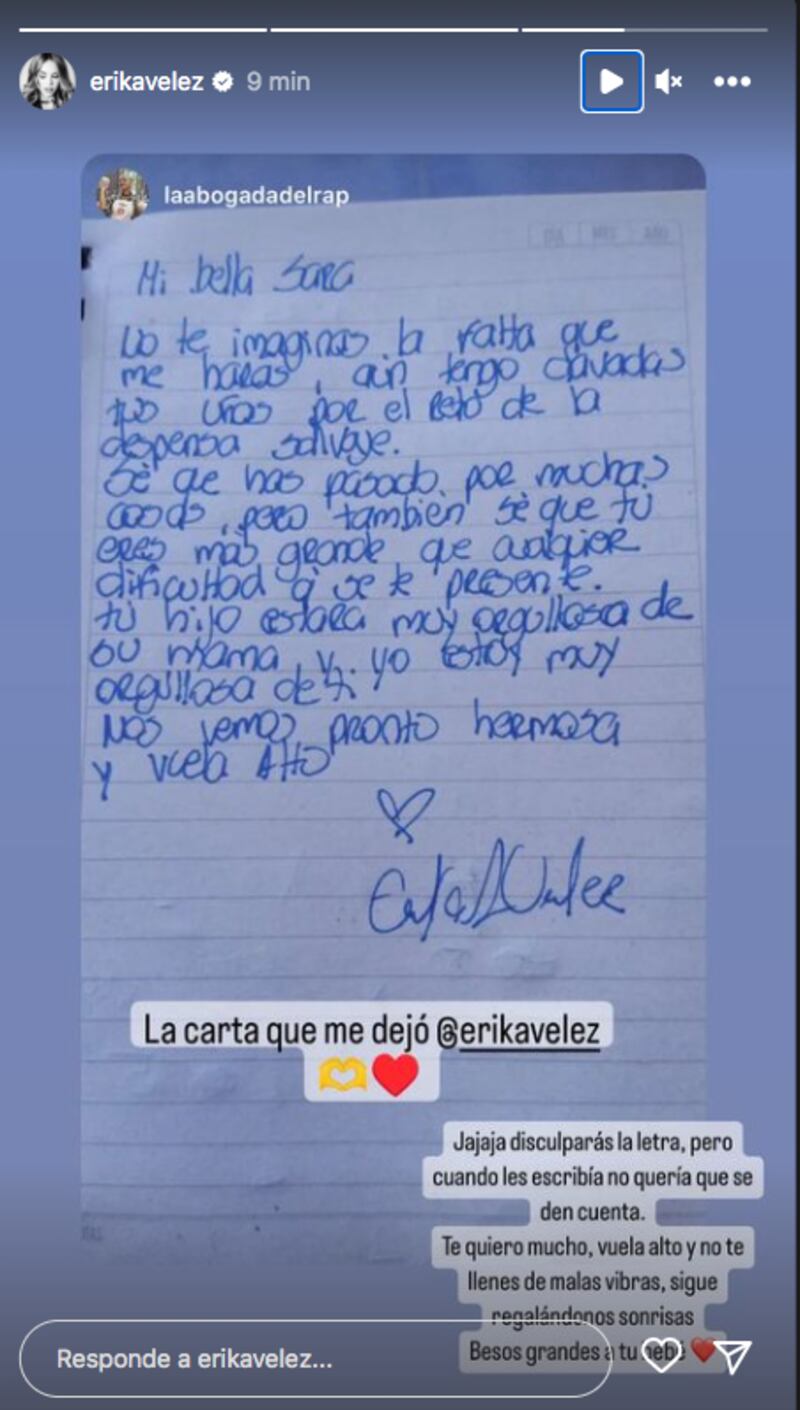 erikavelez 9 min
laabogadadelrap
DIA MES AÑO
Mi bella Sara
No te imaginas la falta que
me haras, aún tengo clavadas
tus uñas por el reto de la
despensa salvaje.
Sé que has pasado por muchas
cosas, pero también sé que tú
eres más grande que cualquier
dificultad q' se te presente.
tu hijo estara muy orgullosa de
su mama, y yo estoy muy
orgullosa de ti.
Nos vemos pronto hermosa
y vuela Alto
La carta que me dejó @erikavelez
🫶❤️
Jajaja disculparás la letra, pero
cuando les escribía no quería que se
den cuenta.
Te quiero mucho, vuela alto y no te
llenes de malas vibras, sigue
regalándonos sonrisas
Besos grandes a tu bebé ❤️
Responde a erikavelez...